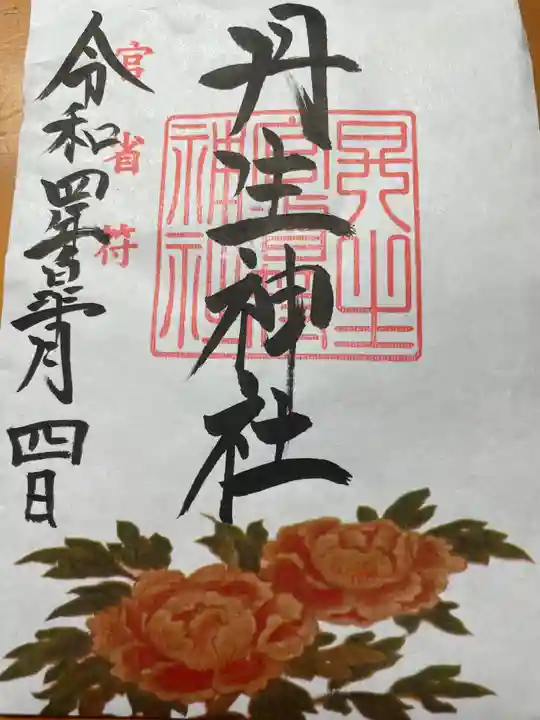 丹生神社
官省符
令和四年皐月四日
神社